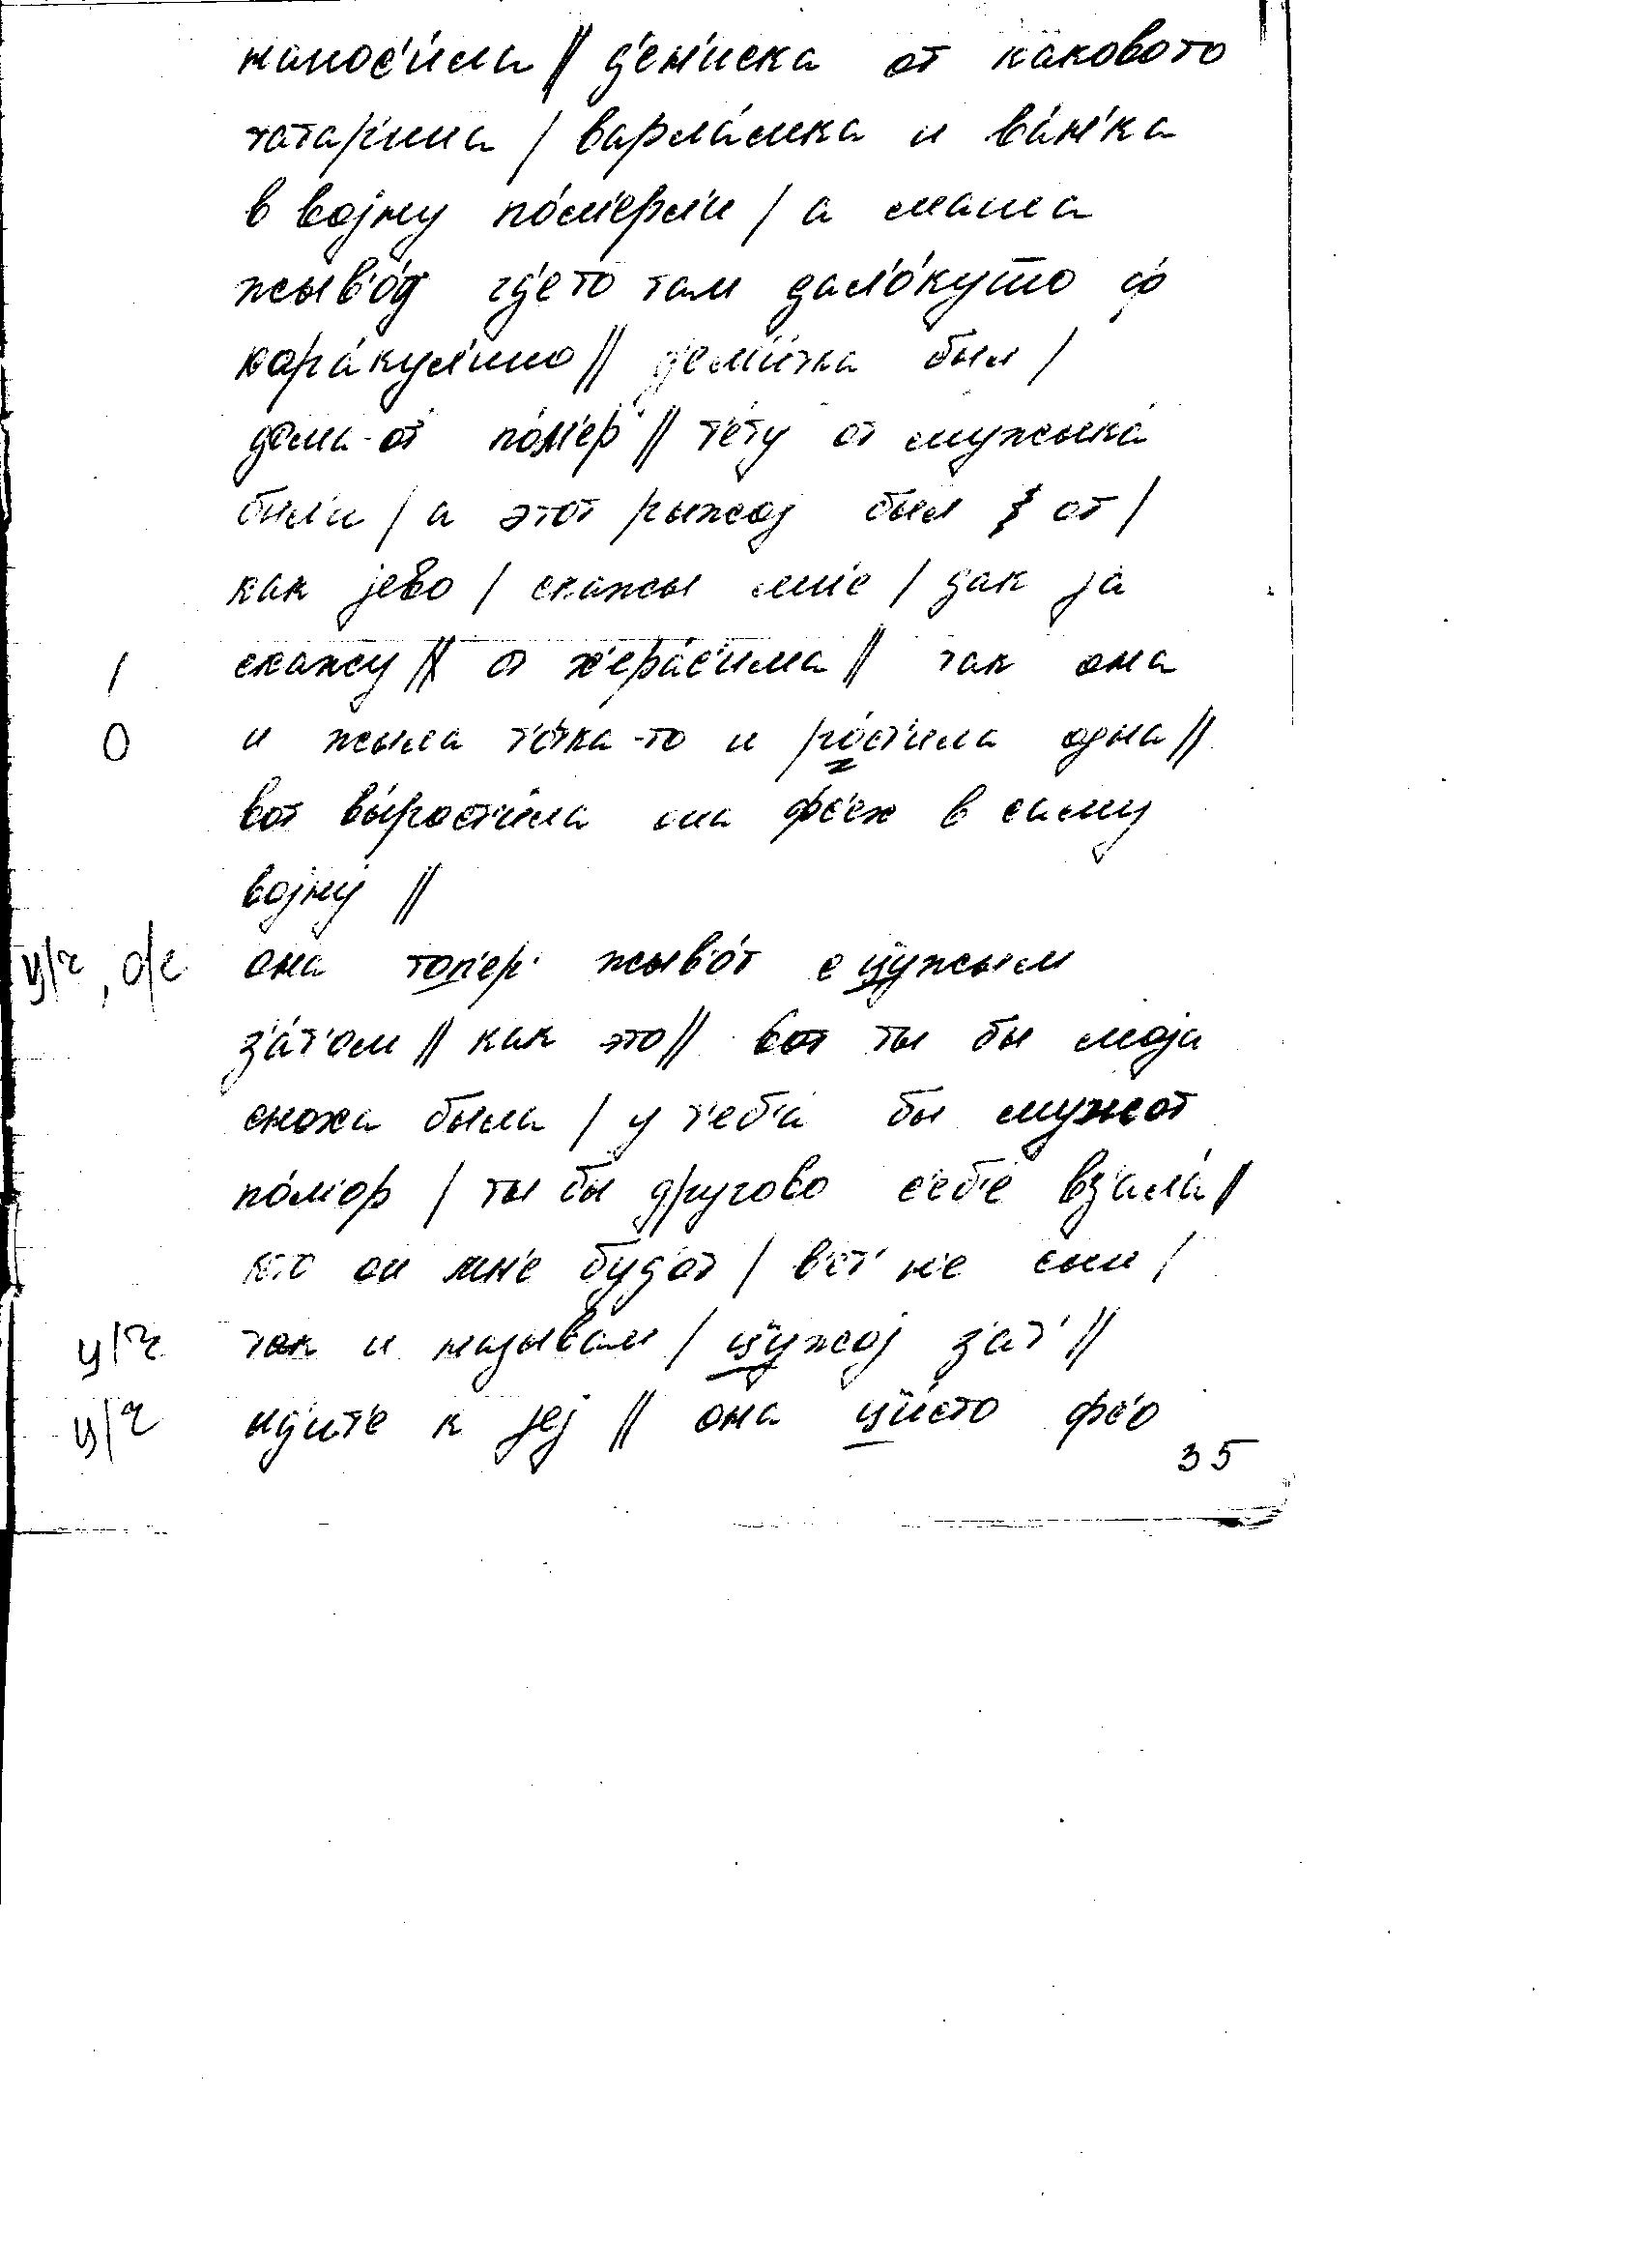 нанос'и́ла // д'ен'иска от каковото
татар'ина / варла́мка и ва́н'ка
в војну по́м'ерл'и / а маша
жыв'о́т гд'ето там дал'о́кушо ф
кара́кул'ино // д'ем'и́чка был /
дома-от по́м'ер // т'ету от мужыка́
был'и / а этот рыжој был от /
как јево / скажы мн'е / дак ја
/ скажу // от х'ера́с'има // так она
О и жыла т'о́тка-то и ро́ст'ила одна //
вот вы́раст'ила она фс'ех в саму
војну //
ц/ч, о/е она топ'ер' жыв'о́т с цужым
з'а́т'ом // как это // вот ты бы моја
сноха была / у т'еб'а́ бы мужот
по́м'ор / ты бы друтово с'еб'е́ вз'ала́ //
кто он мн'е буд'от / в'ет' н'е сын /
ц/ч так и называм / цужој з'ат' //
ц/ч ид'ит'е к јеј // она ц'и́сто фс'о
35